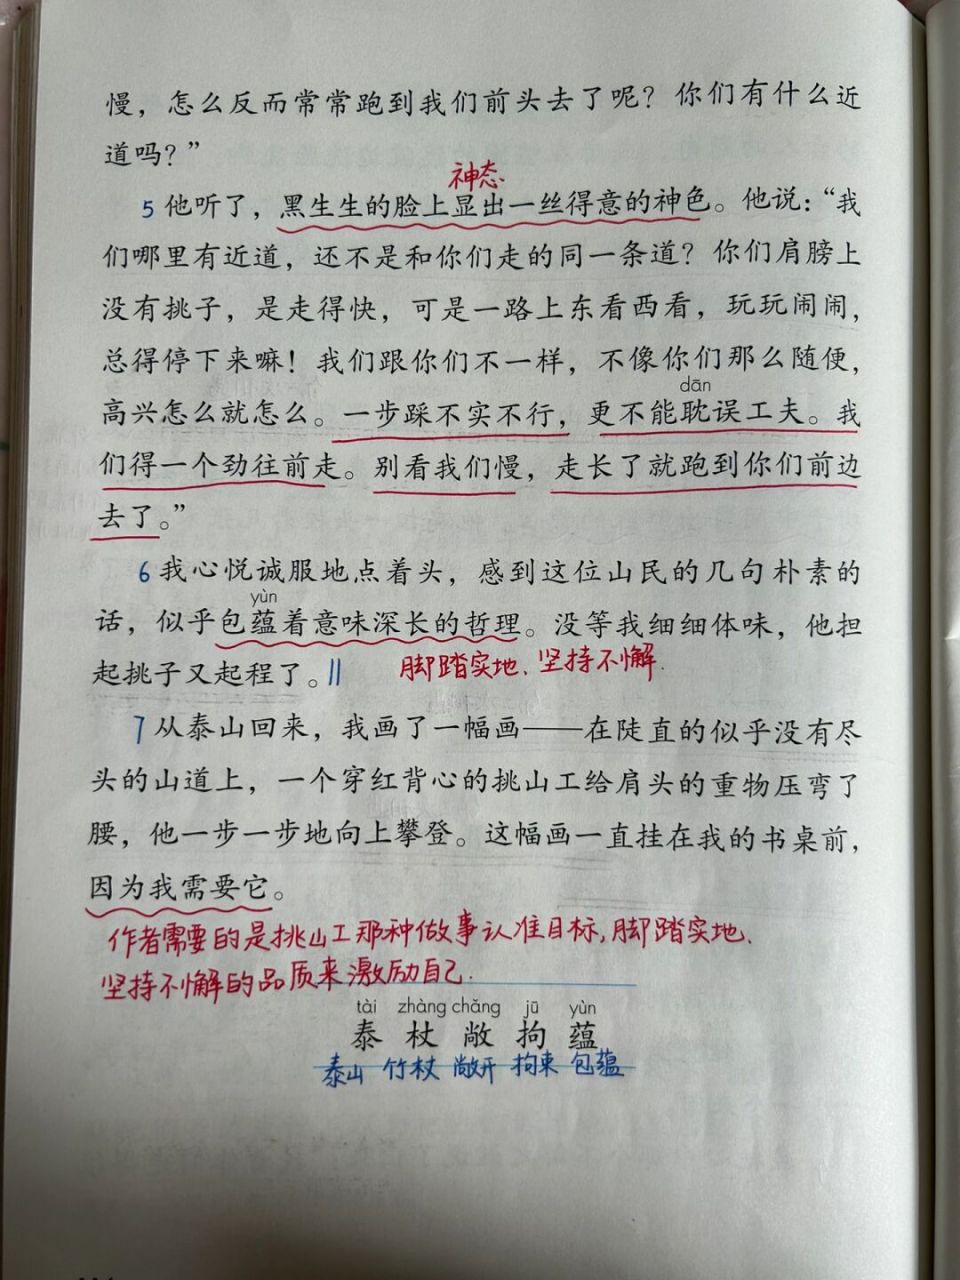 慢，怎么反而常常跑到我们前头去了呢？你们有什么近
道吗？”
神态
5 他听了，黑生生的脸上显出一丝得意的神色。他说：“我
们哪里有近道，还不是和你们走的同一条道？你们肩膀上
没有挑子，是走得快，可是一路上东看西看，玩玩闹闹，
总得停下来嘛！我们跟你们不一样，不像你们那么随便，
dān
高兴怎么就怎么。一步踩不实不行，更不能耽误工夫。我
们得一个劲往前走。别看我们慢，走长了就跑到你们前边
去了。”
6 我心悦诚服地点着头，感到这位山民的几句朴素的
yùn
话，似乎包蕴着意味深长的哲理。没等我细细体味，他担
起挑子又起程了。||
脚踏实地、坚持不懈.
7 从泰山回来，我画了一幅画——在陡直的似乎没有尽
头的山道上，一个穿红背心的挑山工给肩头的重物压弯了
腰，他一步一步地向上攀登。这幅画一直挂在我的书桌前，
因为我需要它。
作者需要的是挑山工那种做事认准目标,脚踏实地、
坚持不懈的品质来激励自己.
tài zhàng chǎng jū yùn
泰 杖 敞 拘 蕴
泰山 竹杖 敞开 拘束 包蕴